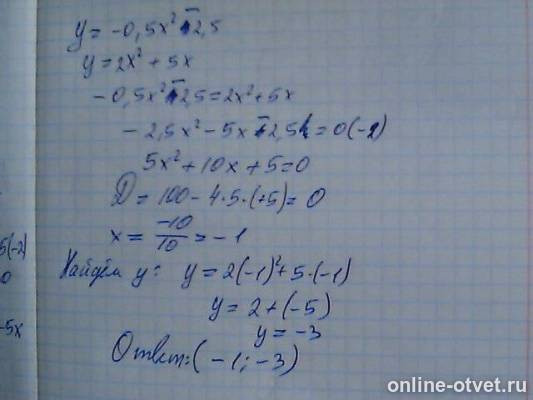 y = -0,5x² - 2,5
y = 2x² + 5x
-0,5x² - 2,5 = 2x² + 5x
-2,5x² - 5x - 2,5 = 0 (-2)
5x² + 10x + 5 = 0
D = 100 - 4·5·(+5) = 0
x = -10/10 = -1
Найдём y: y = 2(-1)² + 5·(-1)
y = 2 + (-5)
y = -3
Ответ: (-1; -3)
5(-2)
0
-5x
online-otvet.ru